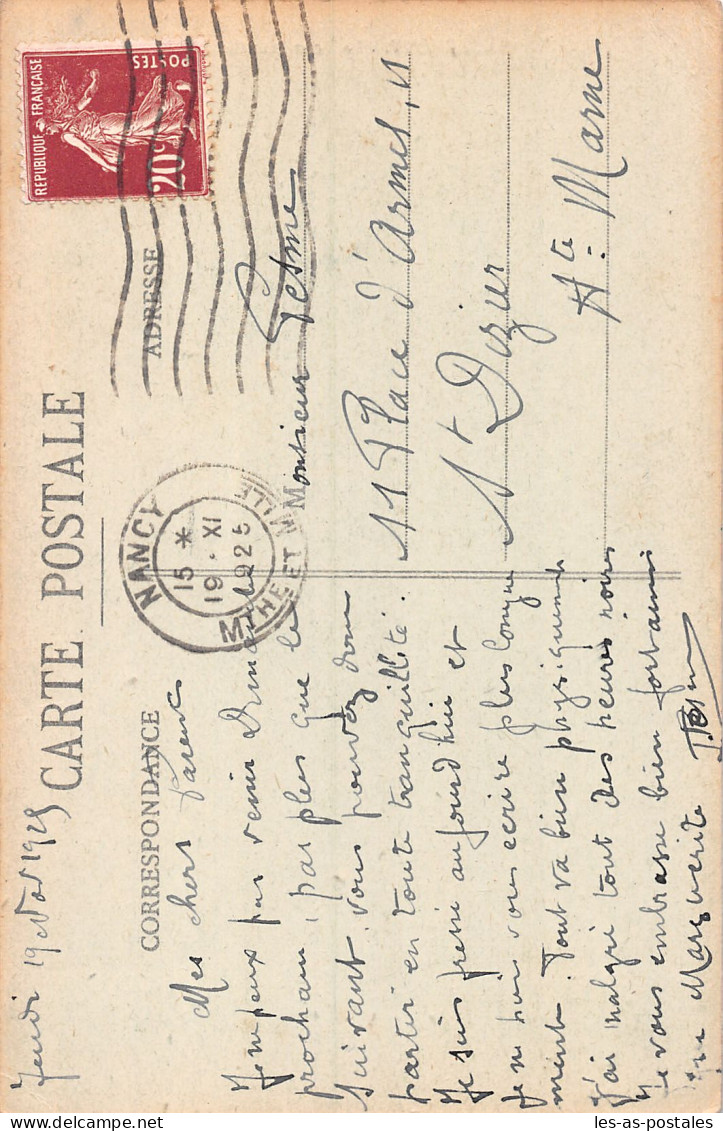 Jeudi 19 Nov 1925
CARTE POSTALE
CORRESPONDANCE
ADRESSE
REPUBLIQUE FRANÇAISE
POSTES
20c
NANCY
15 *
19 · XI
1925
MTHE ET MLLE
Mes chers Parents
Je ne peux pas venir Dimanche
prochain, pas plus que le
suivant. Vous pouvez donc
partir en toute tranquillité.
Je suis pressé aujourd'hui et
je ne puis vous écrire plus longue
ment. Tout va bien physiquement
j'ai malgré tout des heures noires
Je vous embrasse bien fort ainsi
que Marguerite
Monsieur Pesme
11 Place d'Armes, 11
St Dizier
Hte Marne
les-as-postales.com